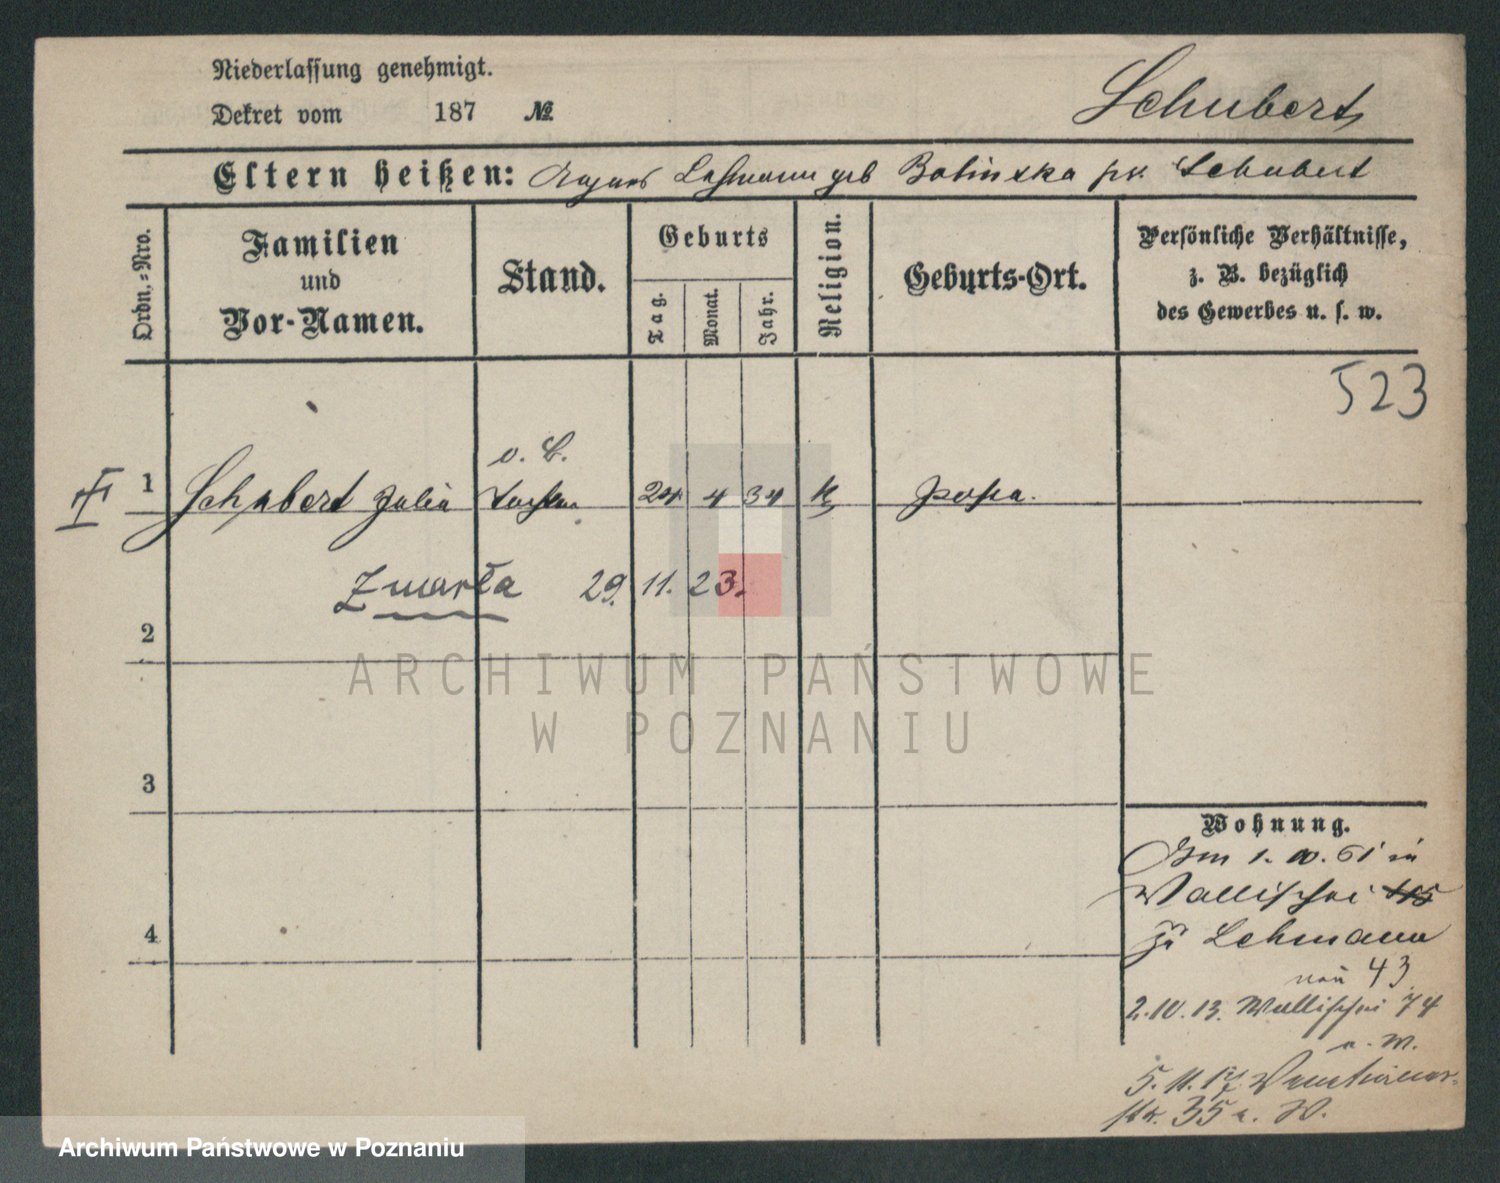 Niederlassung genehmigt.
Dekret vom 187 №
Schubert
Eltern heißen: Lehmann geb Bolinska Schubert
Ordn.-Nro.
Familien
und
Vor-Namen.
Stand.
Geburts
Tag.
Monat.
Jahr.
Religion.
Geburts-Ort.
Persönliche Verhältnisse,
z. B. bezüglich
des Gewerbes u. s. w.
523
v. L.
1 Schubert Julia Tochter 24 4 34 k Posen.
Zmarła 29. 11. 23.
2
3
4
Wohnung.
Am 1. 10. 61 in
Wallischei 115
zu Lehmann
neu 43
2.10.13. Wallischei 74
5. 11. 17.
str. 35
ARCHIWUM PAŃSTWOWE
W POZNANIU
Archiwum Państwowe w Poznaniu